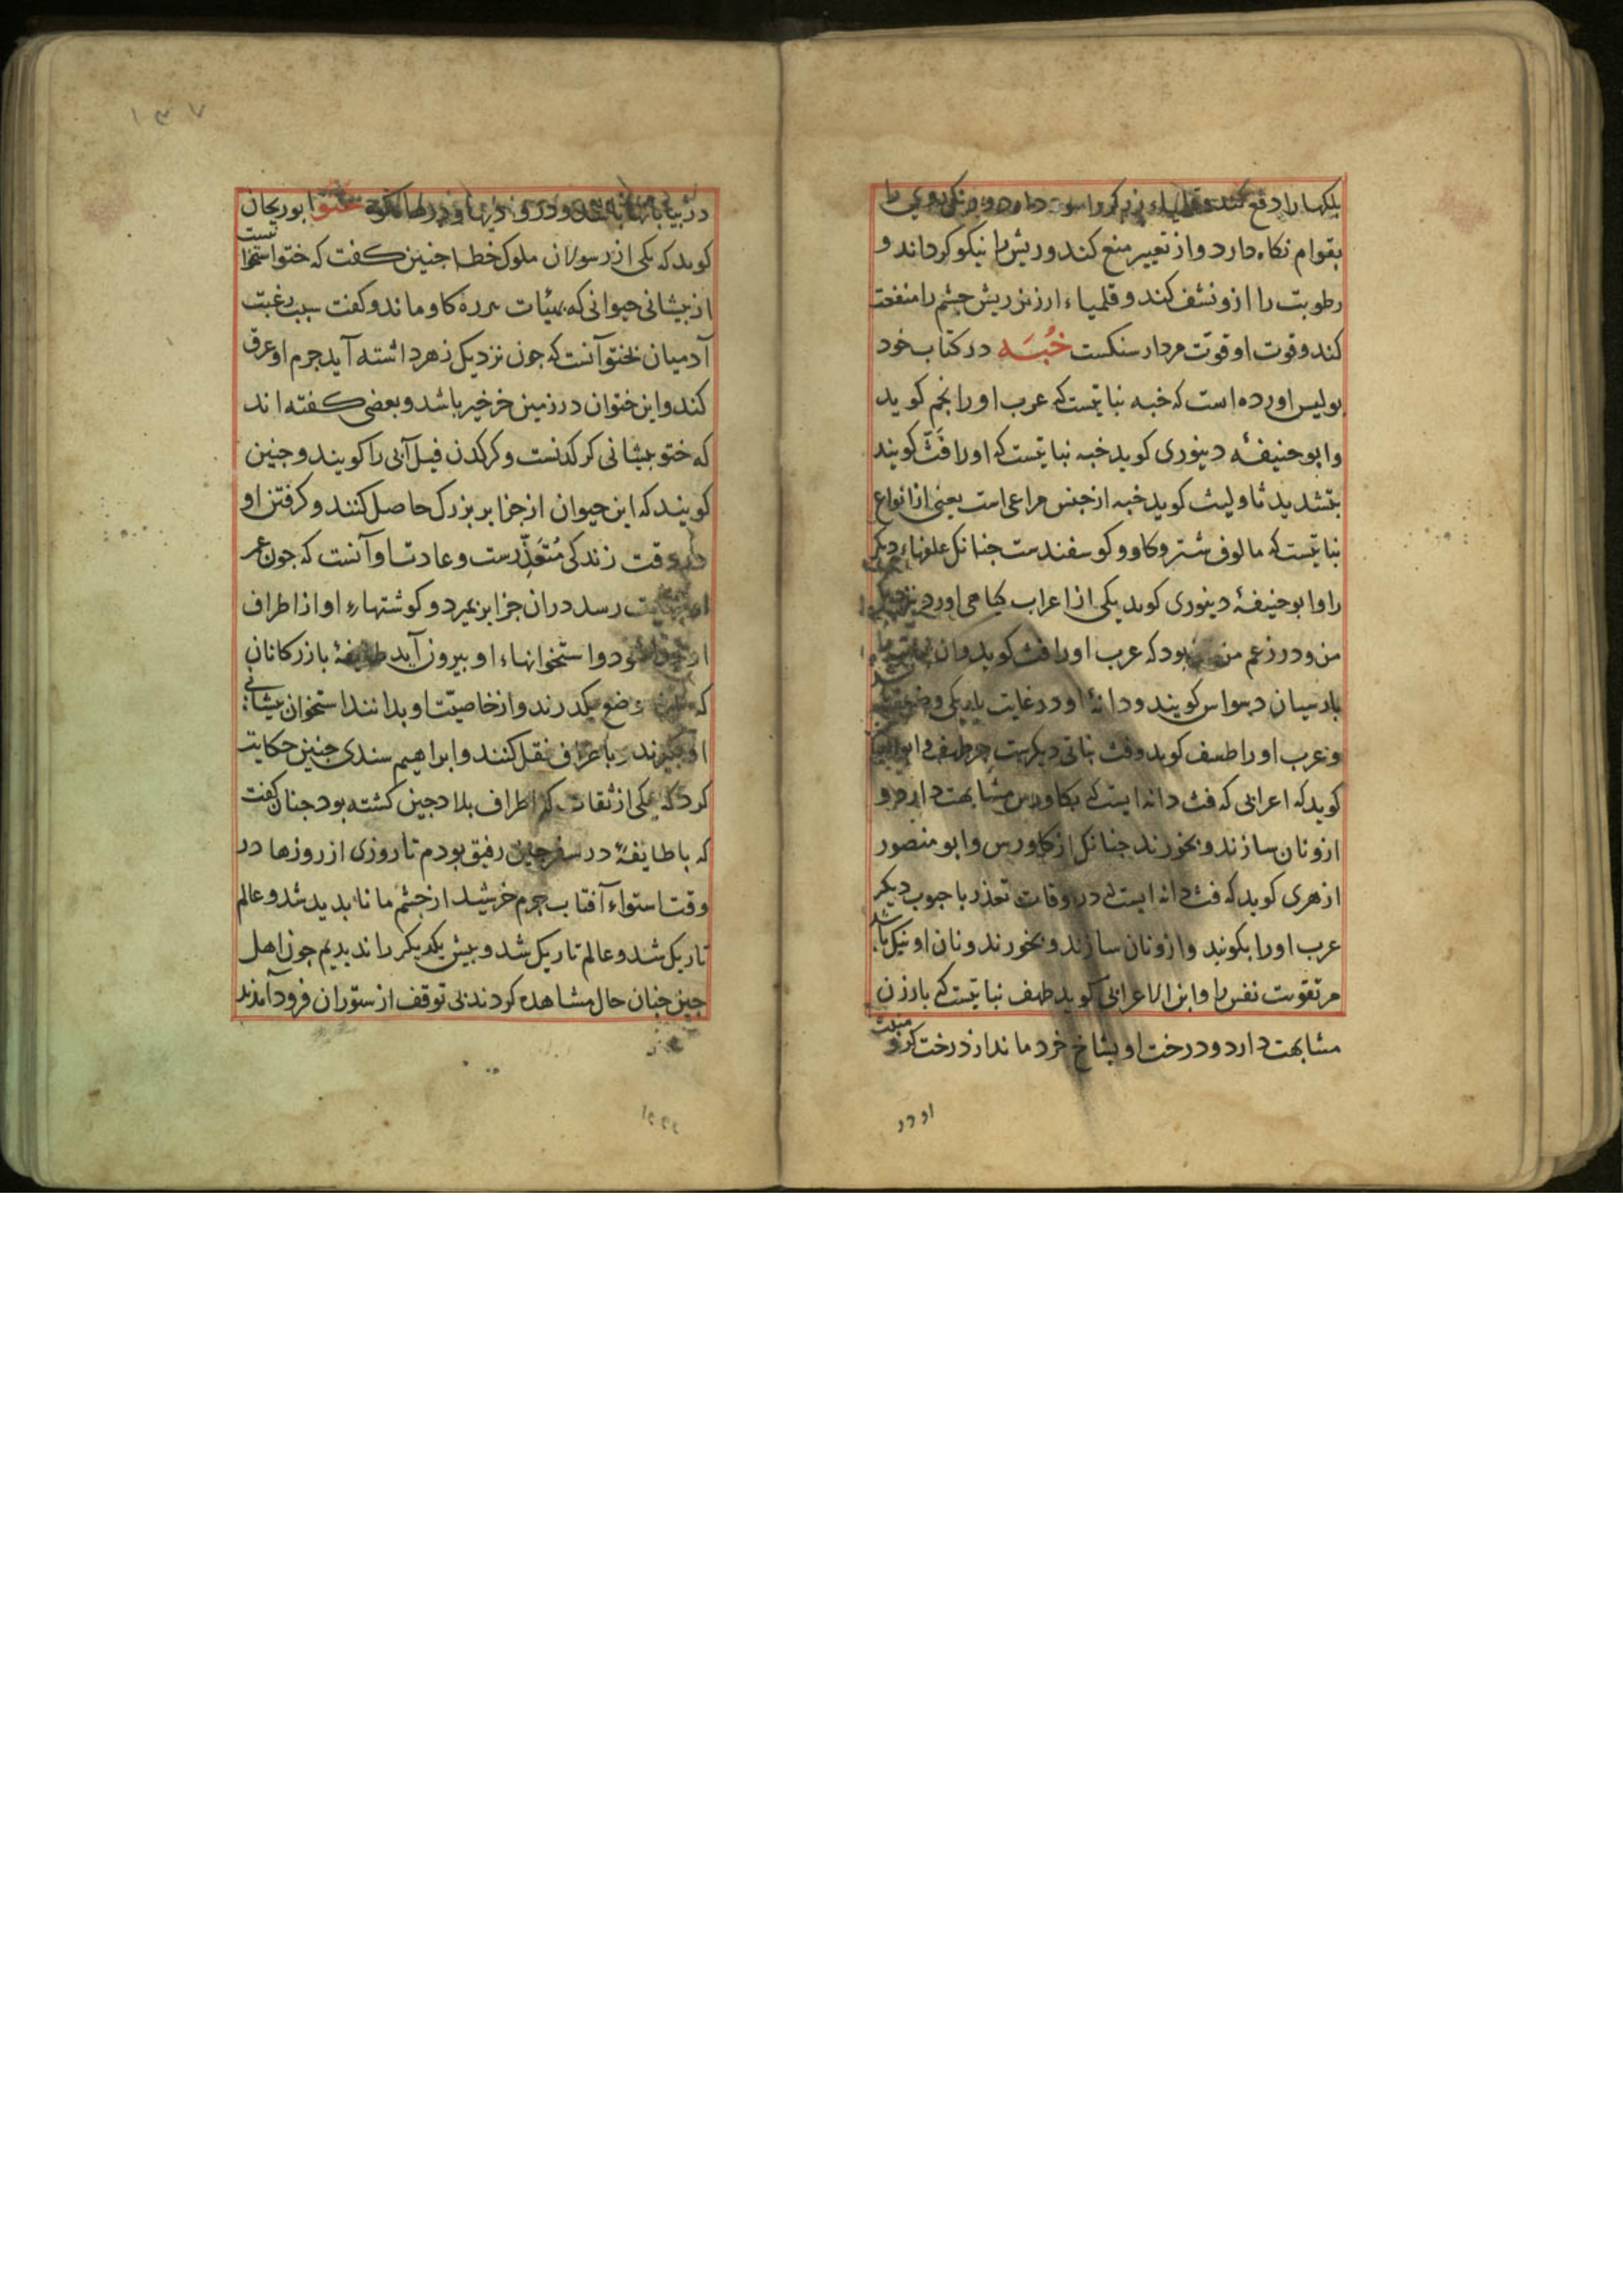 بلکها را دفع کند
بقوام نکاه دارد و از تعییر منع کند و ریش را نیکو کرداند و
رطوبت را ازو نشف کند و قلمیاء ارزیز ریش جشم را منفعت
کند و قوت او قوت مردار سنکست خُبَه در کتاب خود
بولیس اورده است که خبه نباتیست که عرب او را نجم کوید
و ابو حنیفهٔ دینوری کوید خبه نباتیست که او را فَثّ کویند
بتشدید ثا و لیث کوید خبه از جنس مراعی است یعنی از انواع
نباتیست که مالوف شتر و کاو و کوسفندست جنانک علفهاء دیکر
را و ابو حنیفهٔ دینوری کوید یکی از اعراب کیاهی اورد
من و در زعم من بود که عرب او را فث کوید و ان
بارسیان دیواس کویند و دانهٔ او در غایت باریکی و
و عرب او را طهف کوید و فث نباتی دیکرست جز طهف و
کوید که اعرابی که فث دانه ایست که بکاورس مشابهت دارد و
ازو نان سازند و بخورند جنانک از کاورس و ابو منصور
ازهری کوید که فث دانه ایست که در اوقات تعذر با جوب دیکر
عرب او را بکوبند و ازو نان سازند و بخورند و نان او نیک باشد
مر تقویت نفس را و ابن الاعرابی کوید طهف نباتیست که بارزن
مشابهت دارد و درخت او بشاخ خرد ماند از درخت کرو
او در
۱۳۷
در بیابانها باشد و در رودها و در ختو ابوریحان
کوید که یکی از رسولان ملوک خطا جنین کفت که ختو استخوانیست
از بیشانی حیوانی که بهیئات کاو ماند و کفت سبب رغبت
آدمیان بختو آنست که جون نزدیک زهر داشته آید جرم او عرق
کند و این ختوان در زمین خرخیر باشد و بعضی کفته اند
که ختو بیشانی کرکدنست و کرکدن فیل آبی را کویند و جنین
کویند که این حیوان از جزایر بزرک حاصل کنند و کرفتن او
در وقت زندکی مُتَعَذِّرست و عادت او آنست که جون عمر
او رسد دران جزایر بمیرد و کوشتهاء او از اطراف
او شود و استخوانهاء او بیرون آید طایفهٔ بازرکانان
که موضع بکدرند و از خاصیّت او بدانند استخوان بیشانی
او بکیرند و باطراف نقل کنند و ابراهیم سندی جنین حکایت
کرد که یکی از ثقات که اطراف بلاد جین کشته بود جنان کفت
که با طایفهٔ در سفر جین رفیق بودم تا روزی از روزها در
وقت استواء آفتاب جرم خرشید از جشم ما نابدید شد و عالم
تاریک شد و عالم تاریک شد و بیش یکدیکر را ندیدیم جون اهل
جین جنان حال مشاهده کردند بی توقف از ستوران فرود آمدند